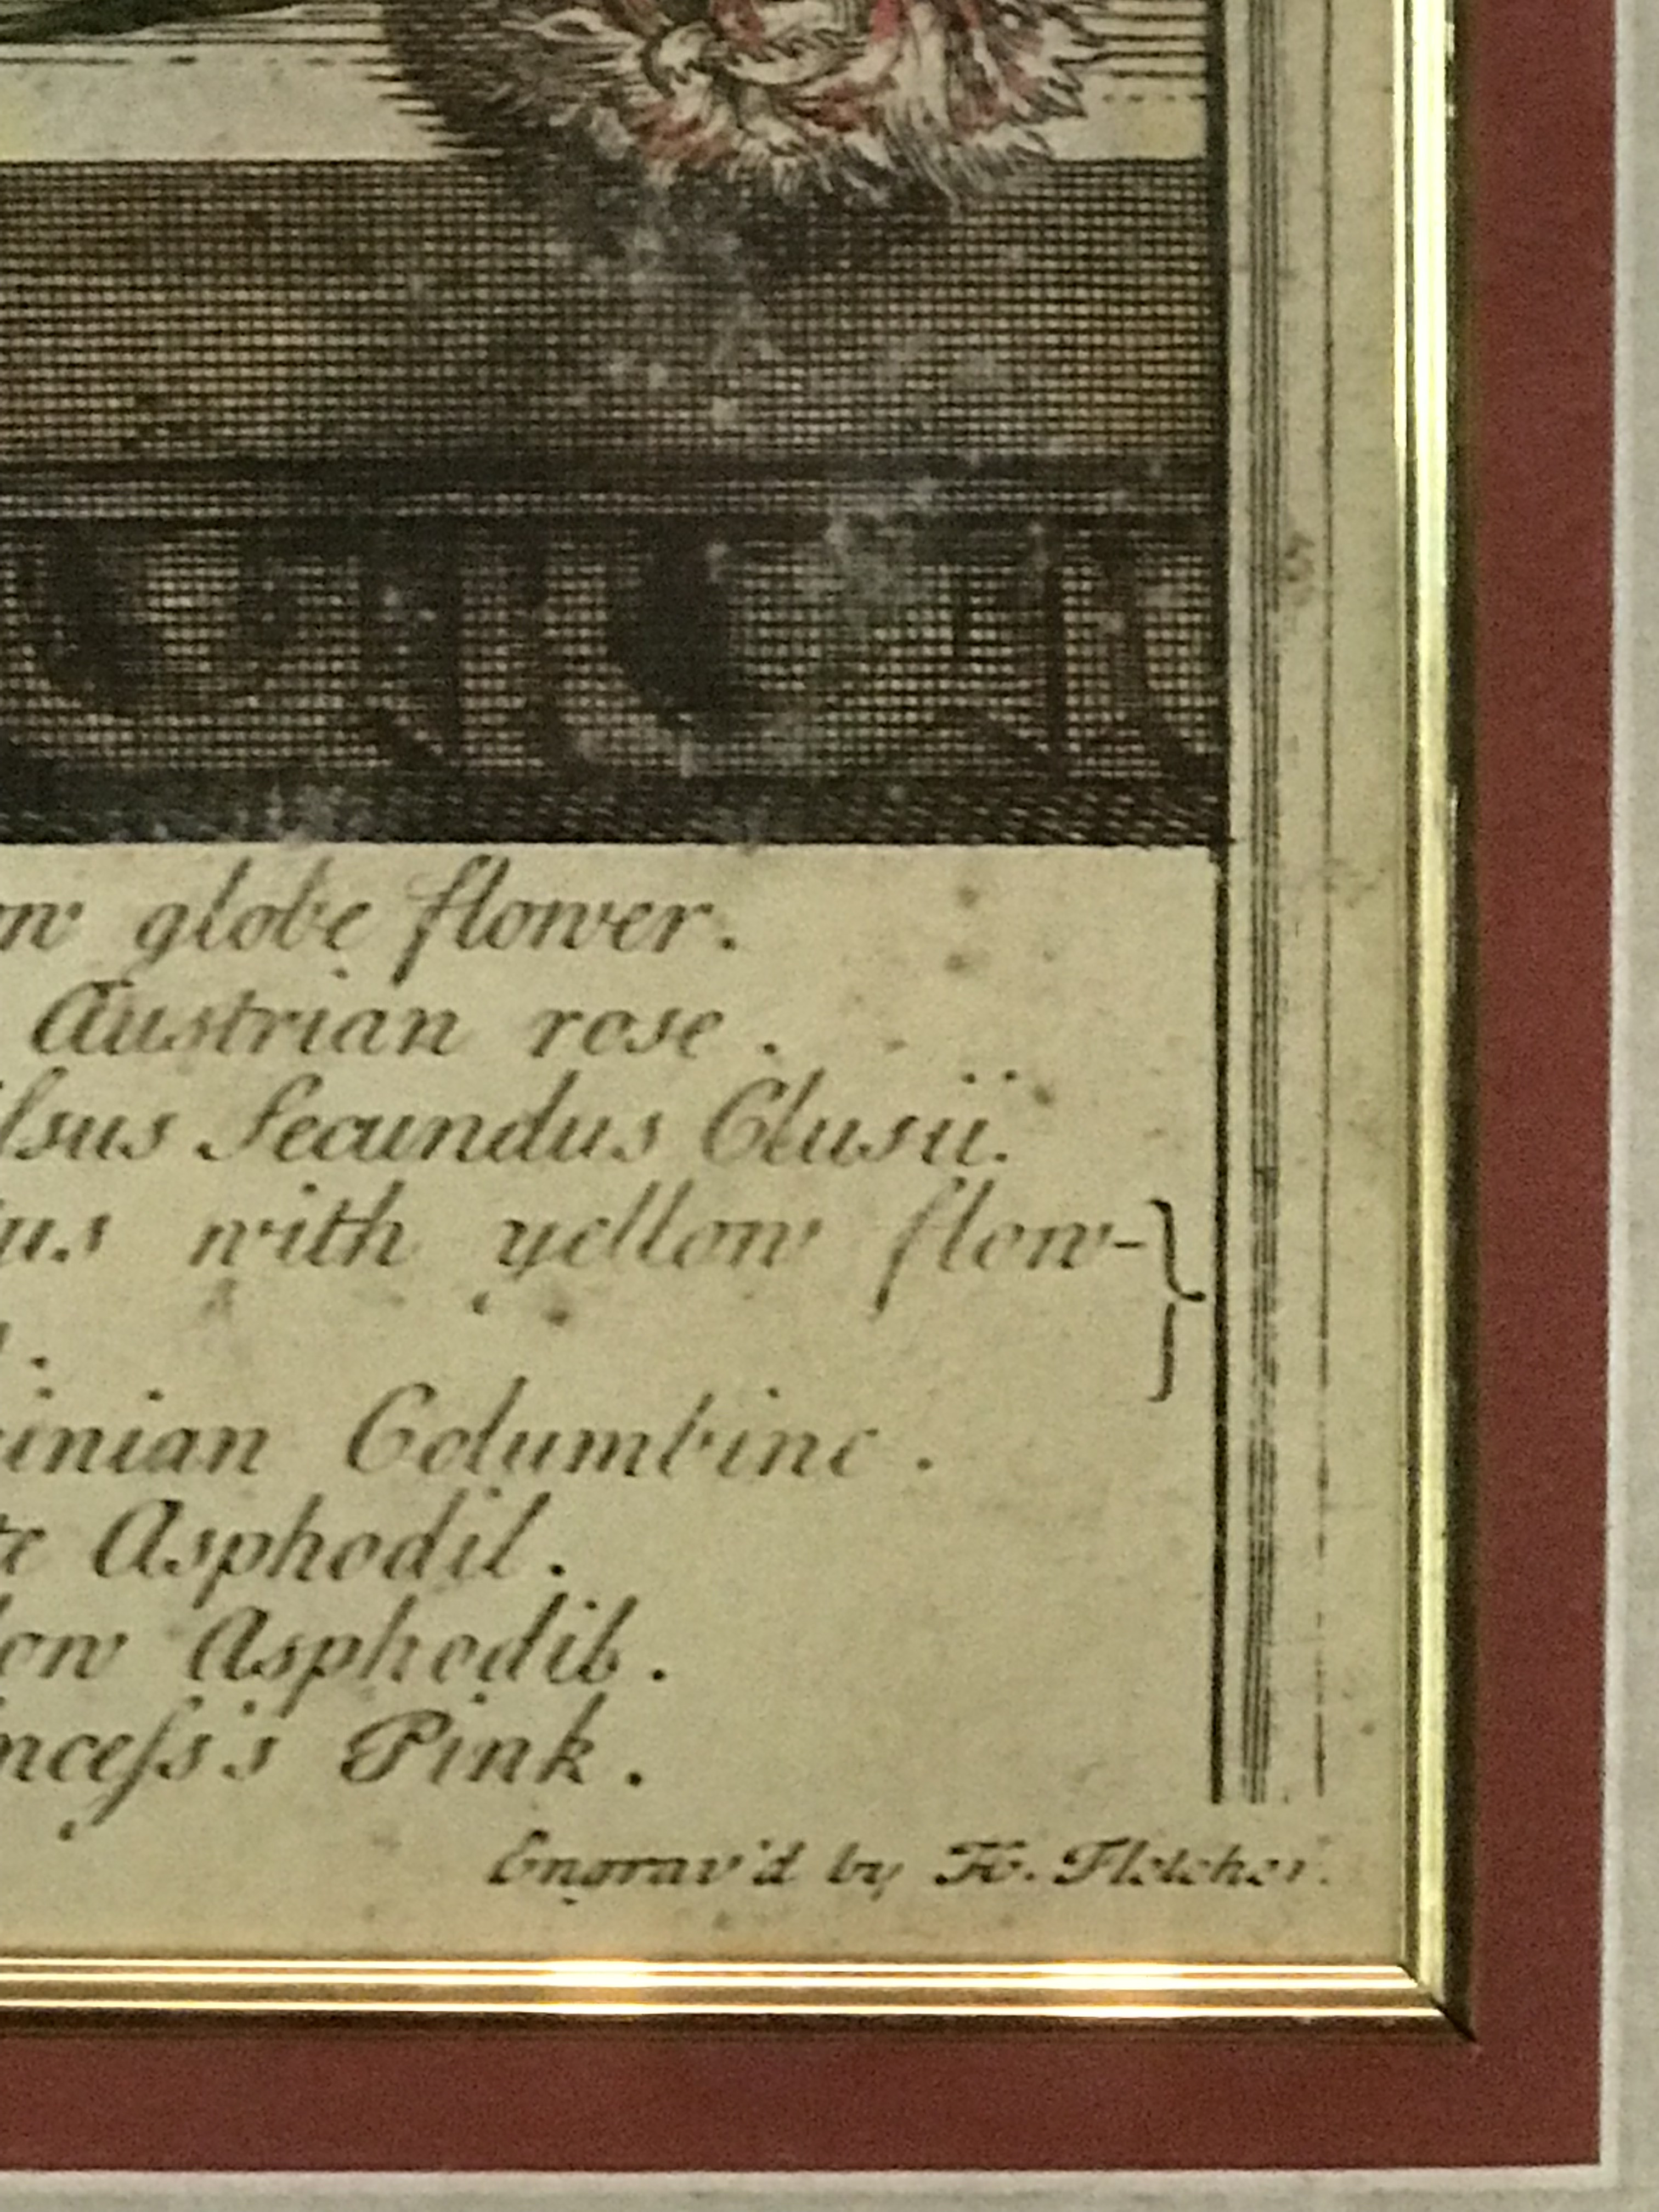 w globe flower.
Austrian rose.
lsus Secundus Clusii.
us with yellow flow-
inian Columbine.
te Asphodil.
low Asphodil.
nceſs's Pink.
Engrav'd by H. Fletcher.